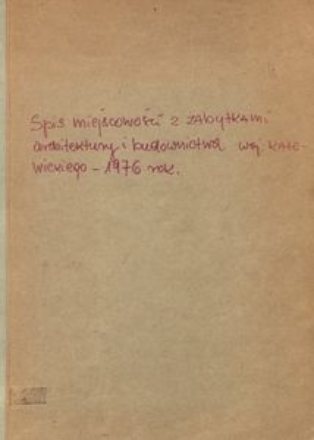 Spis miejscowości z zabytkami
architektury i budownictwa woj kato-
wickiego - 1976 rok.